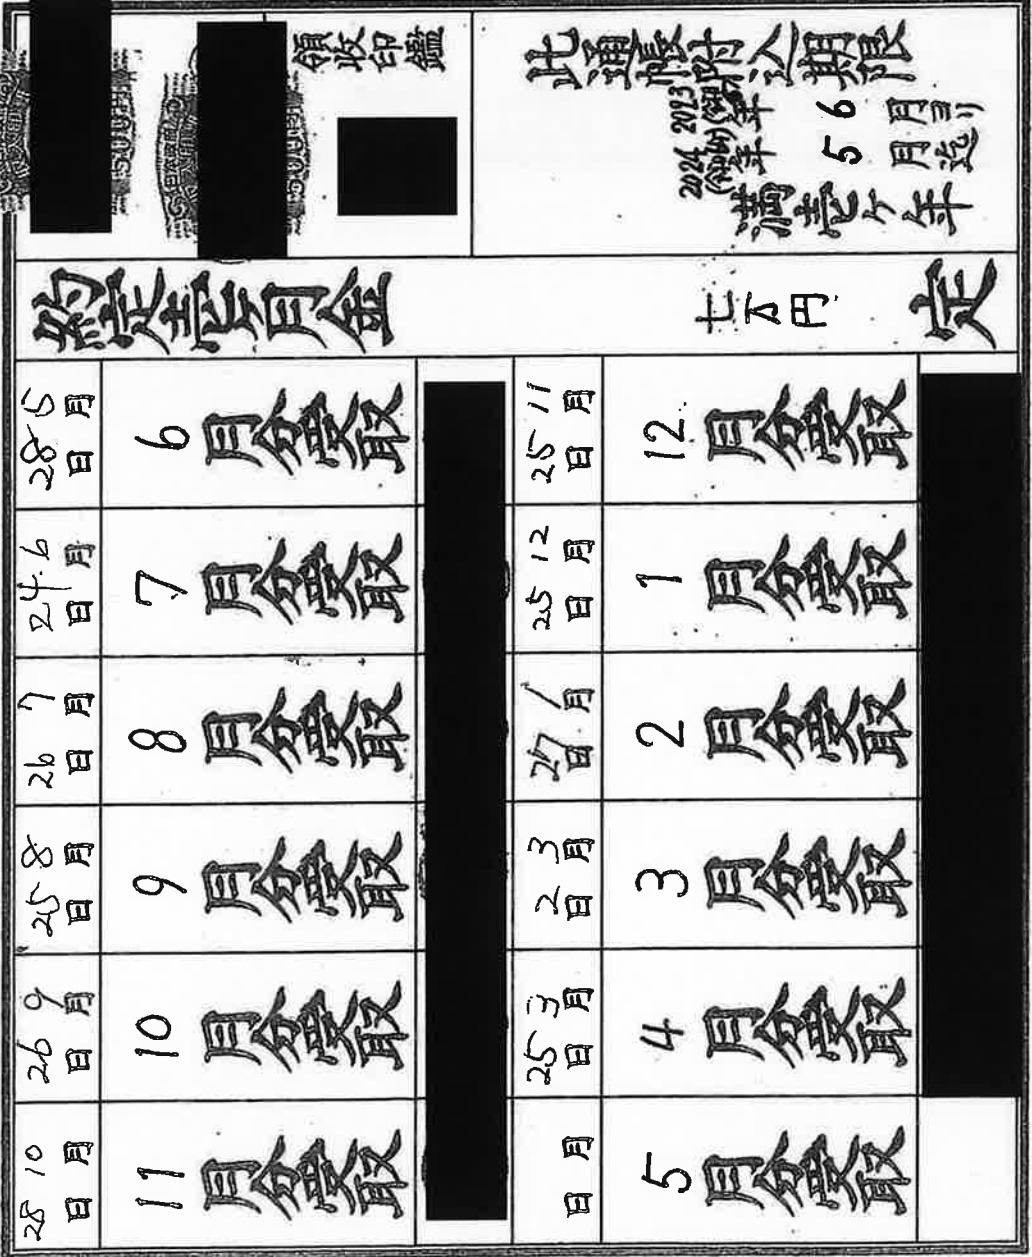 此通帳附込期限
2023(令和5)年6月ヨリ
2024(令和6)年5月迄
満壱ヶ年
領収印鑑
約定壱ヶ月金 七万円 定
5月28日 6月分受取
6月24日 7月分受取
7月26日 8月分受取
8月25日 9月分受取
9月26日 10月分受取
10月28日 11月分受取
11月25日 12月分受取
12月25日 1月分受取
1月27日 2月分受取
3月2日 3月分受取
3月25日 4月分受取
月 日 5月分受取